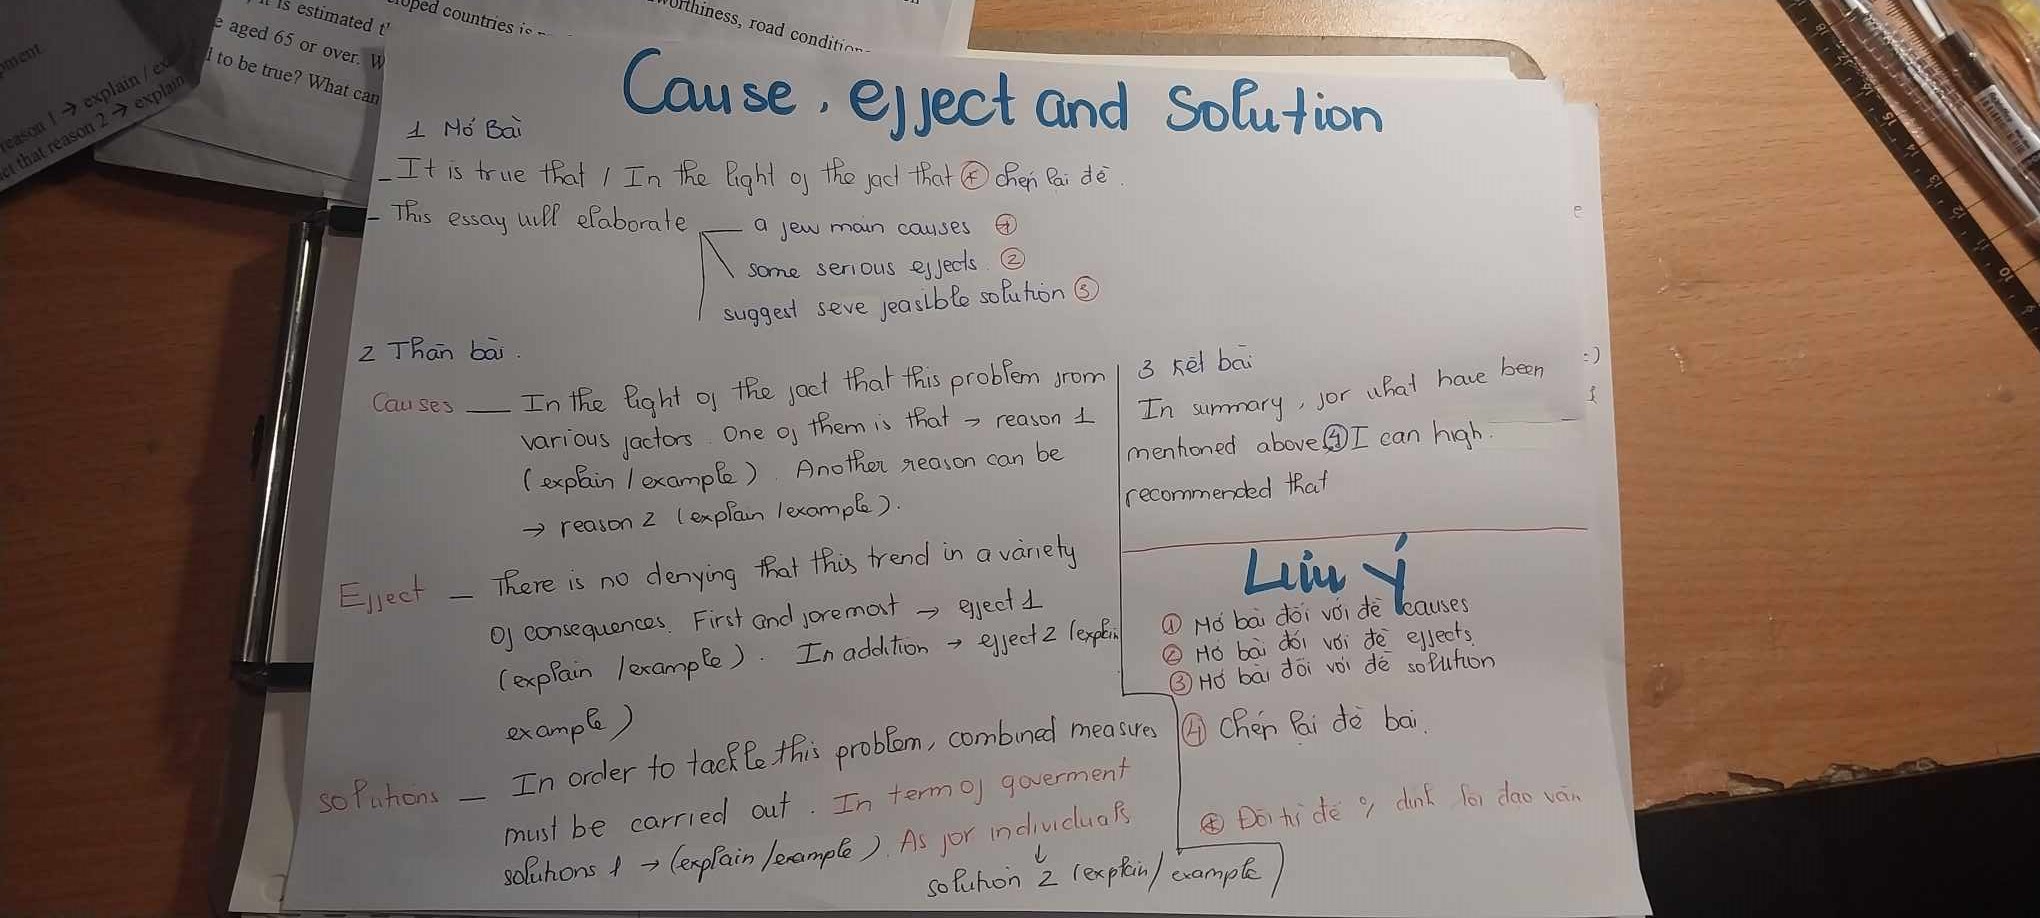 is estimated t
oped countries is
worthiness, road condition
e aged 65 or over. W
to be true? What can
pment.
reason 1 → explain / ex
ct that reason 2 → explain
Cause, effect and Solution
1 Mở Bài
- It is true that / In the light of the fact that * chép lại đề.
- This essay will elaborate
a few main causes ①
some serious effects. ②
suggest seve feasible solution ③
2 Thân bài.
Causes — In the light of the fact that this problem from
various factors. One of them is that → reason 1
(explain / example). Another reason can be
→ reason 2 (explain / example).
Effect — There is no denying that this trend in a variety
of consequences. First and foremost → effect 1
(explain / example). In addition → effect 2 (explain
example)
solutions — In order to tackle this problem, combined measures
must be carried out. In term of goverment
solutions 1 → (explain / example). As for individuals
↓
solution 2 (explain / example)
3 Kết bài
In summary, for what have been
mentioned above ④ I can high.
recommended that
:)
Lưu ý
① Mở bài đối với đề causes
② Mở bài đối với đề effects
③ Mở bài đối với đề solution
④ Chép lại đề bài.
* Đổi từ để dính lỗi đạo văn